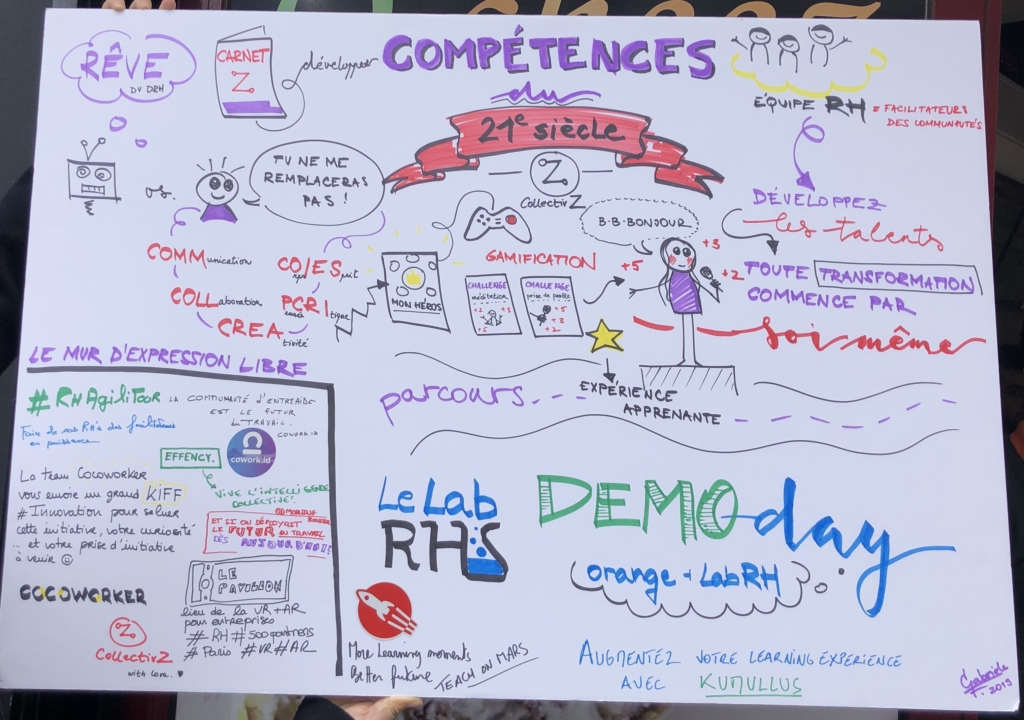 RÊVE
DU DRH
CARNET
Z
développer
COMPÉTENCES
du
21e siècle
Z
CollectivZ
ÉQUIPE RH = FACILITATEURS
DES COMMUNAUTÉS
VS.
TU NE ME
REMPLACERAS
PAS !
COMMunication
COLLaboration
CREAtivité
CO/ESprit
CRItique
MON HÉROS
GAMIFICATION
CHALLENGE
méditation
+2 +3
+5
CHALLENGE
prise de parole
+5
+3
+2
B-B-BONJOUR
+5
+3
+2
DÉVELOPPEZ
les talents
TOUTE TRANSFORMATION
COMMENCE PAR
Soi-même
parcours
EXPÉRIENCE
APPRENANTE
LE MUR D'EXPRESSION LIBRE
#RHAgiliTour LA COMMUNAUTÉ D'ENTRAIDE
EST LE FUTUR
du TRAVAIL.
COWORK.ID
cowork.id
Faire de vos RHs des facilitateurs
en puissance
EFFENCY.
VIVE L'INTELLIGENCE
COLLECTIVE!
La team Cocoworker
vous envoie un grand KIFF
# Innovation pour saluer
cette initiative, votre curiosité
... et votre prise d'initiative
à venir
COCOWORKER
ET SI ON DÉPLOYAIT
LE FUTUR DU TRAVAIL
DÈS AUJOURD'HUI!
LE
PAVILLON
lieu de la VR+AR
pour entreprises
# RH #500 partners
# Paris #VR #AR
Z
CollectivZ
with love. ♥
Le Lab
RHS
DEMO day
orange + LabRH
More learning moments
Better future
TEACH ON MARS
AUGMENTEZ VOTRE LEARNING EXPERIENCE
AVEC KUMULLUS
Gabriele
2019